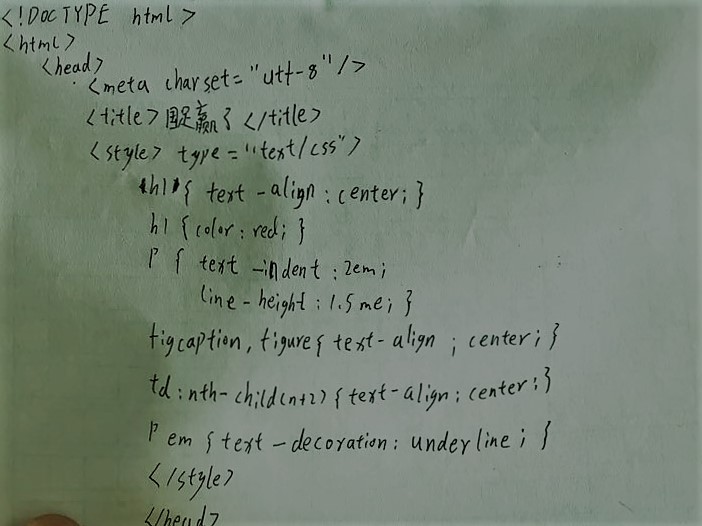 <!DOCTYPE html>
<html>
<head>
<meta charset="utf-8"/>
<title>国足赢了</title>
<style> type="text/css">
h1{ text-align:center; }
h1 {color:red; }
P { text-indent:2em;
line-height:1.5me; }
figcaption, figure{ text-align ; center; }
td:nth-child(n+2) { text-align; center; }
P em { text-decoration: underline; }
</style>
</head>